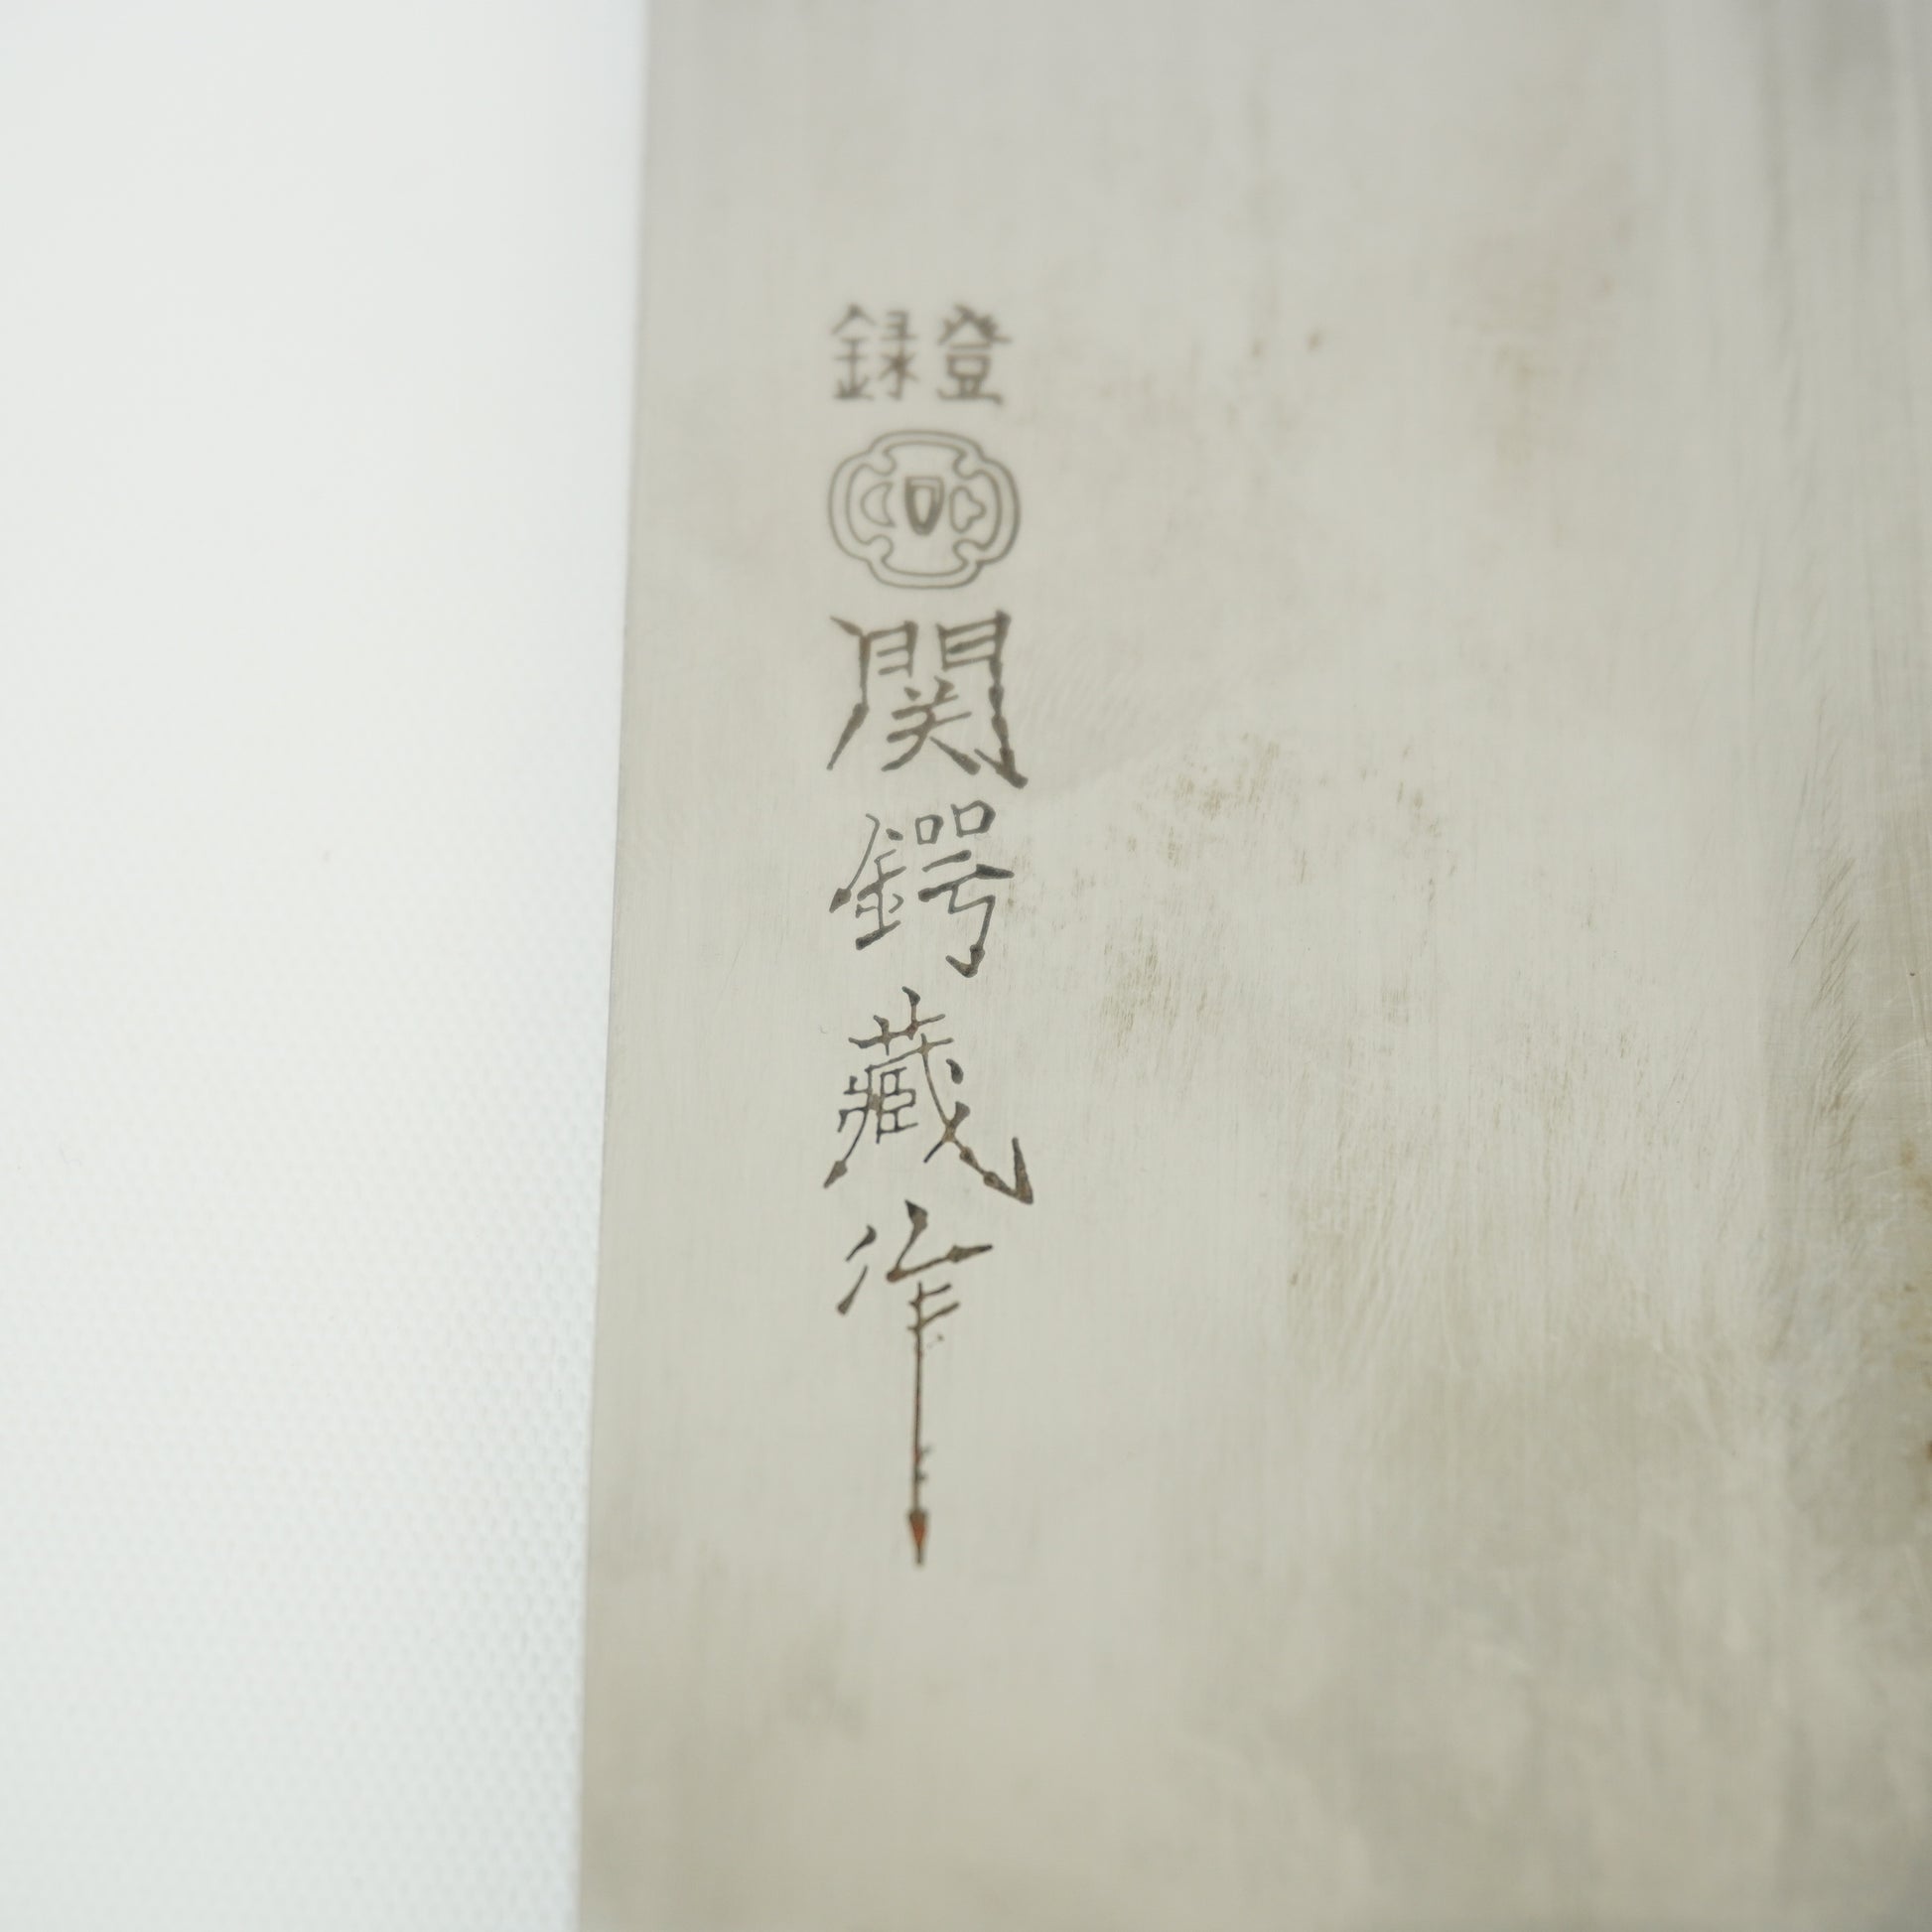 登録
関鍔藏作